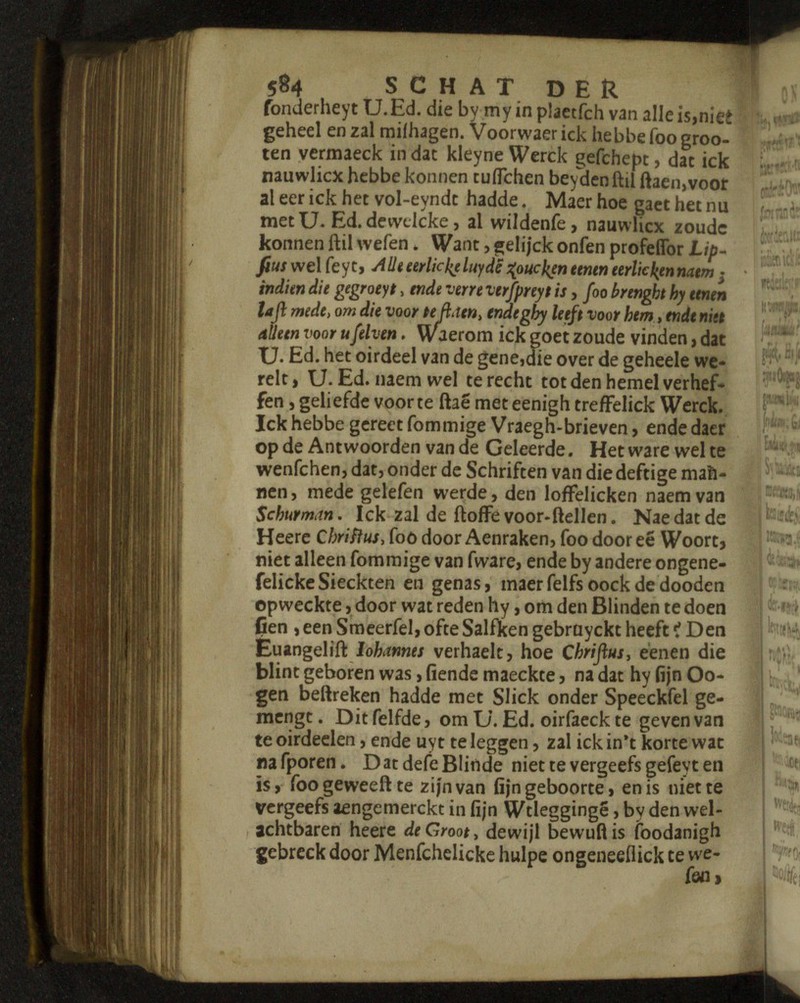 584 SCHAT DER
ſonderheyt U.Ed. die by my in plaetſch van alle is,niet
geheel en zal miſhagen. Voorwaer ick hebbe ſoo groo-
ten vermaeck in dat kleyne Werck geſchept, dat ick
nauwlicx hebbe konnen tuſſchen beyden ſtil ſtaen,voor
al eer ick het vol-eyndt hadde. Maer hoe gaet het nu
met U. Ed. dewelcke, al wildenſe, nauwlicx zoude
konnen ſtil weſen. Want, gelijck onſen profeſſor Lip-
ſius wel ſeyt, Alle eerlicke luydẽ zoucken eenen eerlicken naem ;
indien die gegroeyt, ende verre verſpreyt is, ſoo brenght hy eenen
laſt mede, om die voor te ſtaen, ende ghy leeft voor hem, ende niet
alleen voor u ſelven. Waerom ick goet zoude vinden, dat
U. Ed. het oirdeel van de gene,die over de geheele we-
relt, U. Ed. naem wel te recht tot den hemel verhef-
fen, geliefde voor te ſtaẽ met eenigh treffelick Werck.
Ick hebbe gereet ſommige Vraegh-brieven, ende daer
op de Antwoorden van de Geleerde. Het ware wel te
wenſchen, dat, onder de Schriften van die deftige man-
nen, mede geleſen werde, den loffelicken naem van
Schurman. Ick zal de ſtoffe voor-ſtellen. Nae dat de
Heere Chriſtus, ſoo door Aenraken, ſoo door eẽ Woort,
niet alleen ſommige van ſware, ende by andere ongene-
ſelicke Sieckten en genas, maer ſelfs oock de dooden
opweckte, door wat reden hy, om den Blinden te doen
ſien, een Smeerſel, ofte Salfken gebruyckt heeft? Den
Euangeliſt Iohannes verhaelt, hoe Chriſtus, eenen die
blint geboren was, ſiende maeckte, na dat hy ſijn Oo-
gen beſtreken hadde met Slick onder Speeckſel ge-
mengt. Dit ſelfde, om U. Ed. oirſaeck te geven van
te oirdeelen, ende uyt te leggen, zal ick in't korte wat
na ſporen. Dat deſe Blinde niet te vergeefs geſeyt en
is, ſoo geweeſt te zijn van ſijn geboorte, en is niet te
vergeefs aengemerckt in ſijn Wtleggingẽ, by den wel-
achtbaren heere de Groot, dewijl bewuſt is ſoodanigh
gebreck door Menſchelicke hulpe ongeneeſlick te we-
ſen,